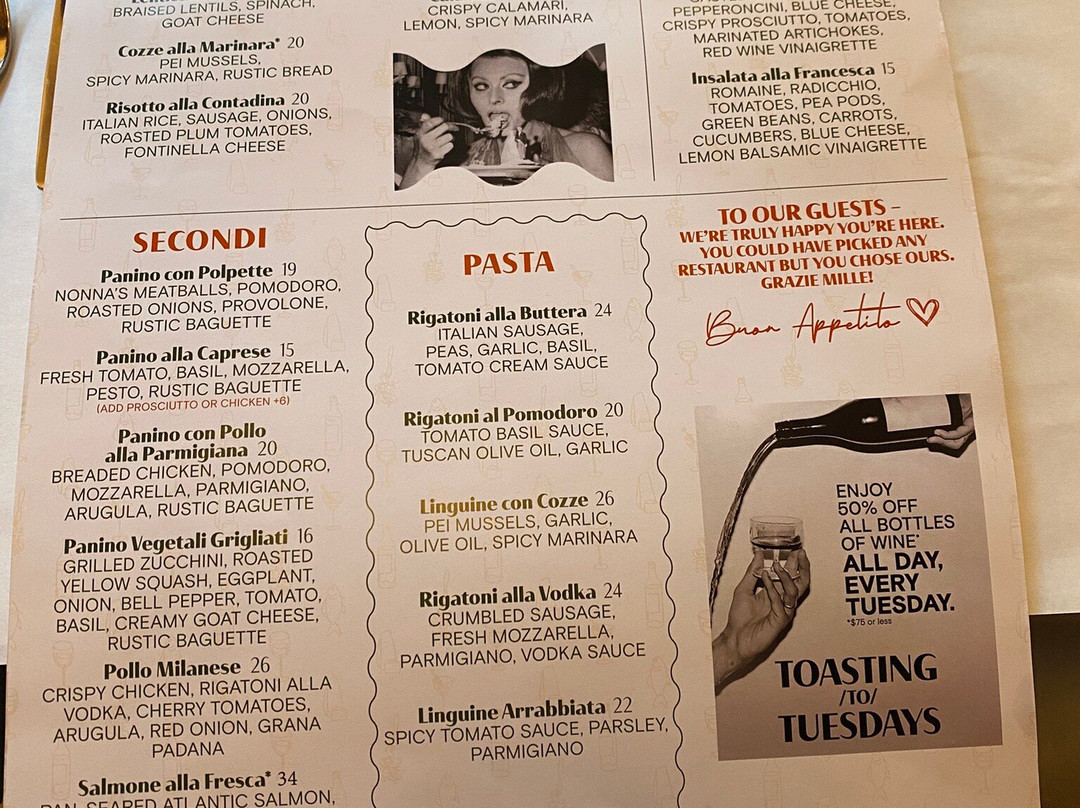 BRAISED LENTILS, SPINACH,
GOAT CHEESE
Cozze alla Marinara* 20
PEI MUSSELS,
SPICY MARINARA, RUSTIC BREAD
Risotto alla Contadina 20
ITALIAN RICE, SAUSAGE, ONIONS,
ROASTED PLUM TOMATOES,
FONTINELLA CHEESE
CRISPY CALAMARI,
LEMON, SPICY MARINARA
PEPPERONCINI, BLUE CHEESE,
CRISPY PROSCIUTTO, TOMATOES,
MARINATED ARTICHOKES,
RED WINE VINAIGRETTE
Insalata alla Francesca 15
ROMAINE, RADICCHIO,
TOMATOES, PEA PODS,
GREEN BEANS, CARROTS,
CUCUMBERS, BLUE CHEESE,
LEMON BALSAMIC VINAIGRETTE
SECONDI
Panino con Polpette 19
NONNA'S MEATBALLS, POMODORO,
ROASTED ONIONS, PROVOLONE,
RUSTIC BAGUETTE
Panino alla Caprese 15
FRESH TOMATO, BASIL, MOZZARELLA,
PESTO, RUSTIC BAGUETTE
(ADD PROSCIUTTO OR CHICKEN +6)
Panino con Pollo
alla Parmigiana 20
BREADED CHICKEN, POMODORO,
MOZZARELLA, PARMIGIANO,
ARUGULA, RUSTIC BAGUETTE
Panino Vegetali Grigliati 16
GRILLED ZUCCHINI, ROASTED
YELLOW SQUASH, EGGPLANT,
ONION, BELL PEPPER, TOMATO,
BASIL, CREAMY GOAT CHEESE,
RUSTIC BAGUETTE
Pollo Milanese 26
CRISPY CHICKEN, RIGATONI ALLA
VODKA, CHERRY TOMATOES,
ARUGULA, RED ONION, GRANA
PADANA
Salmone alla Fresca* 34
PAN-SEARED ATLANTIC SALMON,
PASTA
Rigatoni alla Buttera 24
ITALIAN SAUSAGE,
PEAS, GARLIC, BASIL,
TOMATO CREAM SAUCE
Rigatoni al Pomodoro 20
TOMATO BASIL SAUCE,
TUSCAN OLIVE OIL, GARLIC
Linguine con Cozze 26
PEI MUSSELS, GARLIC,
OLIVE OIL, SPICY MARINARA
Rigatoni alla Vodka 24
CRUMBLED SAUSAGE,
FRESH MOZZARELLA,
PARMIGIANO, VODKA SAUCE
Linguine Arrabbiata 22
SPICY TOMATO SAUCE, PARSLEY,
PARMIGIANO
TO OUR GUESTS –
WE'RE TRULY HAPPY YOU'RE HERE.
YOU COULD HAVE PICKED ANY
RESTAURANT BUT YOU CHOSE OURS.
GRAZIE MILLE!
Buon Appetito
ENJOY
50% OFF
ALL BOTTLES
OF WINE*
ALL DAY,
EVERY
TUESDAY.
*$75 or less
TOASTING
/TO/
TUESDAYS